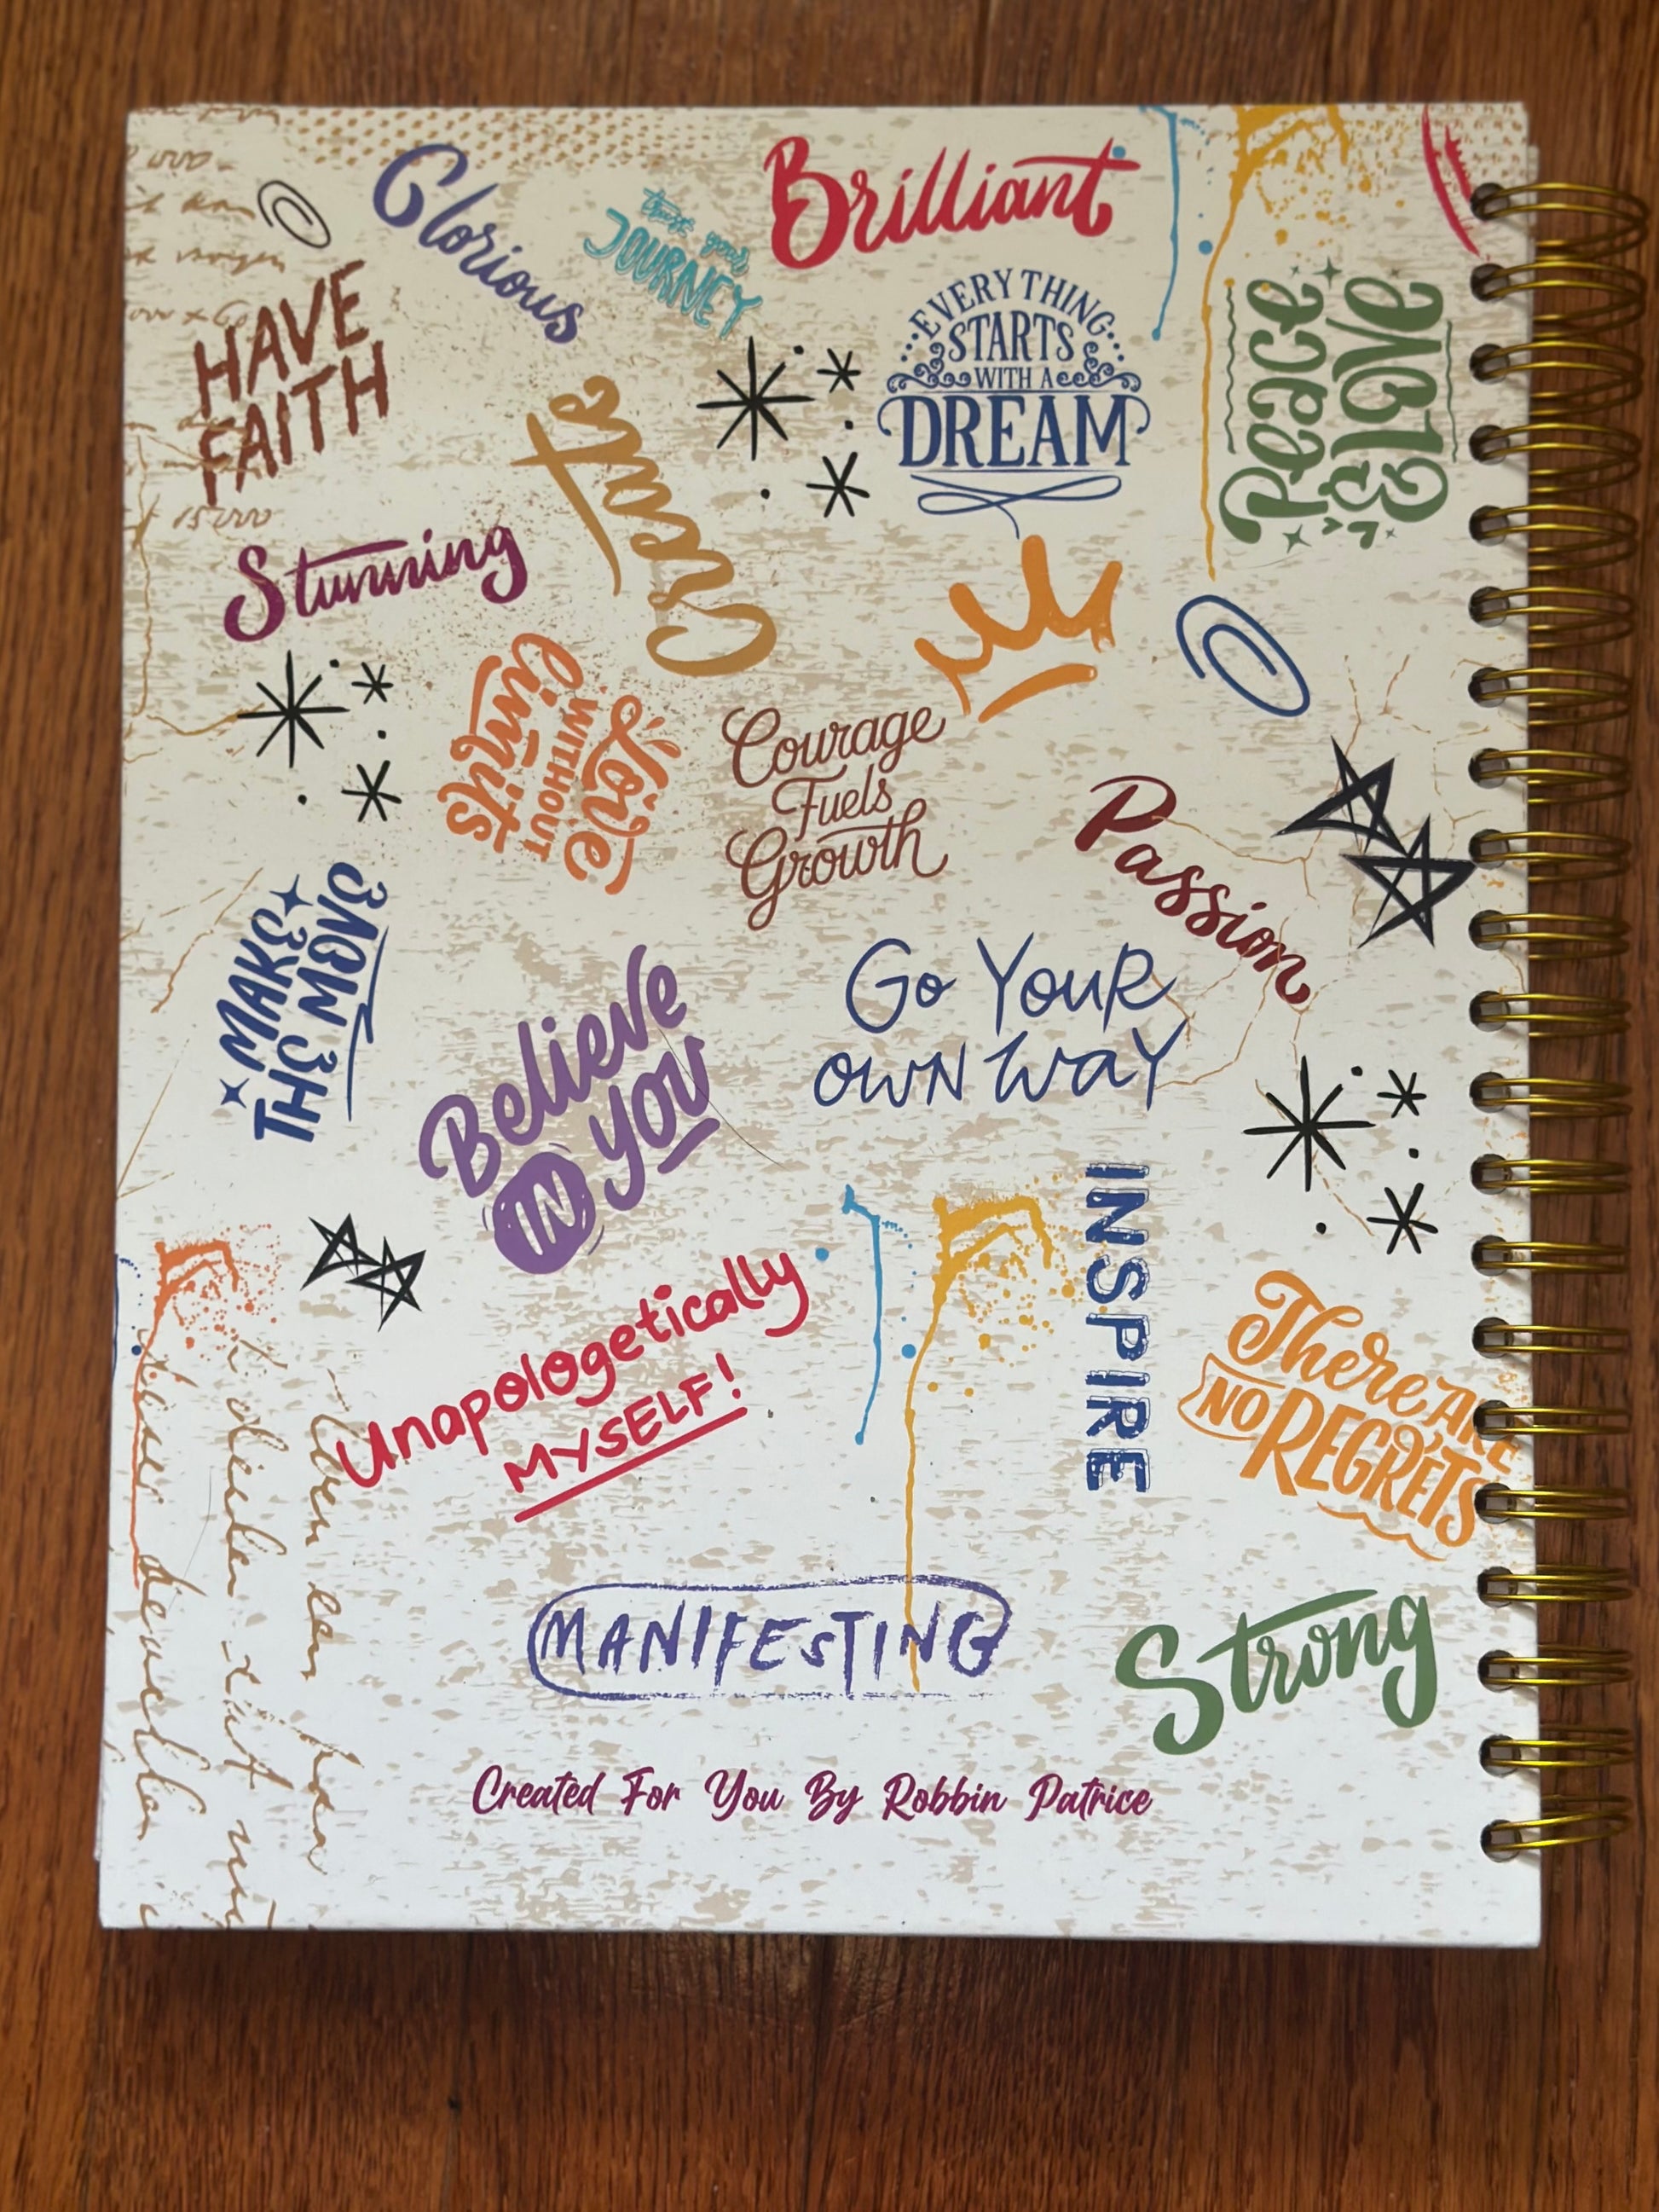 Glorious
trust your
JOURNEY
Brilliant
HAVE
FAITH
EVERYTHING
STARTS
WITH A
DREAM
Peace
& LOVE
Create
Stunning
Love
WITHOUT
Limits
Courage
Fuels
Growth
Passion
MAKE
THE MOVE
Believe
IN YOU
Go YouR
OWN WaY
INSPIRE
Unapologetically
MYSELF!
There ARE
NO REGRETS
MANIFESTING
Strong
Created For You By Robbin Patrice